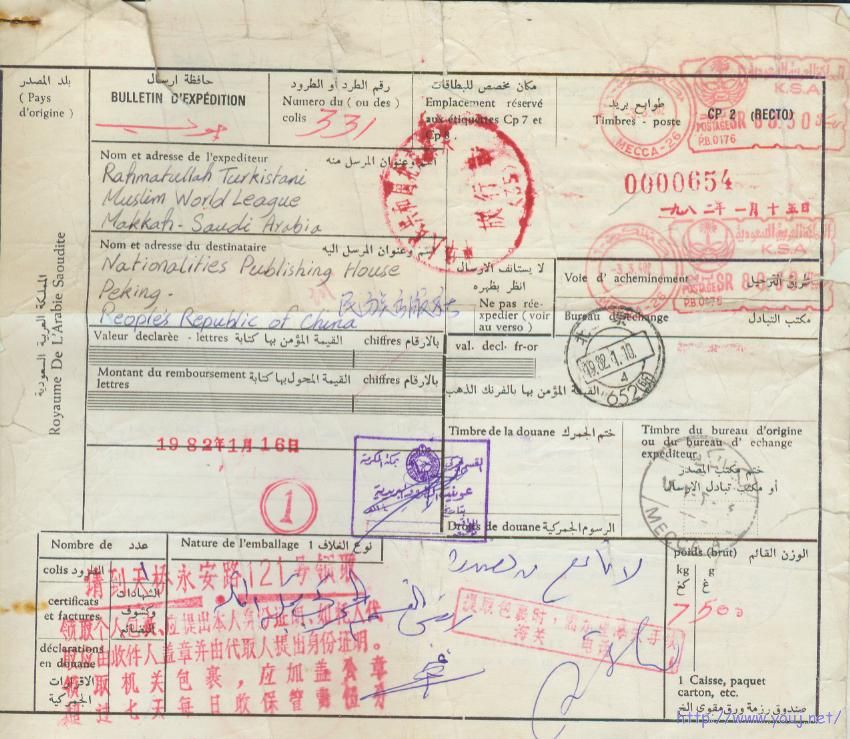 بلد المصدر
( Pays
d'origine )
المملكة العربية السعودية
Royaume De L'Arabie Saoudite
حافظة ارسال
BULLETIN D'EXPÉDITION
رقم الطرد أو الطرود
Numero du ( ou des )
colis 331
مكان مخصص للبطاقات
Emplacement réservé
aux étiquettes Cp 7 et
Cp 8 .
طوابع بريد
Timbres - poste
CP 2 (RECTO)
K.S.A
POSTAGE SR
P.B.0176
MECCA-26
0000654
一九八二年一月十五日
K.S.A
POSTAGE SR
P.B.0176
旅行
Nom et adresse de l'expediteur
اسم وعنوان المرسل منه
Rahmatullah Turkistani
Muslim World League
Makkah - Saudi Arabia
Nom et adresse du destinataire
اسم وعنوان المرسل اليه
Nationalities Publishing House
Peking.
People's Republic of China
民族出版社
لا يستأنف الارسال
انظر بظهره
Ne pas rée-
xpedier ( voir
au verso )
Voie d' acheminement
طريق الترحيل
Bureau d'echange
مكتب التبادل
Valeur declarée - lettres
القيمة المؤمن بها كتابة
chiffres
بالأرقام
val. decl. fr-or
القيمة المؤمن بها بالفرنك الذهب
19.82.1.10.
652
Montant du remboursement
lettres
القيمة المحول بها كتابة
chiffres
بالأرقام
1982年1月16日
1
Timbre de la douane
ختم الجمرك
Timbre du bureau d'origine
ou du bureau d' echange
expéditeur
ختم مكتب المصدر
أو مكتب تبادل الارسال
MECCA
Droits de douane
الرسوم الجمركية
Nombre de
عدد
colis
الطرود
1
certificats
et factures
الشهادات
وكشوف
البضائع
déclarations
en douane
الاقرارات
الجمركية
Nature de l'emballage 1
نوع الغلاف
poids (brut)
الوزن القائم
kg
g
كغ
غ
7 500
请到天桥永安路121号领取
领取个人包裹、应提出本人身份证明、如托人代
取应由收件人盖章并由代取人提出身份证明。
领取机关包裹，应加盖公章
超过七天每日收保管费伍分
提取包裹时，需办理海关手续
海关
1 Caisse, paquet
carton, etc.
صندوق رزمة ورق مقوى الخ
http://www.youj.net/